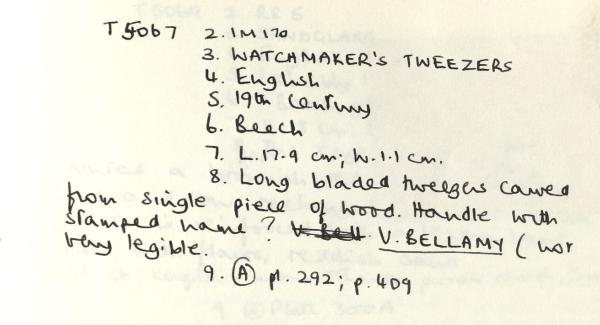 T5067 2. IM170
3. WATCHMAKER'S TWEEZERS
4. English
5. 19th Century
6. Beech
7. L.17.9 cm; W.1.1 cm.
8. Long bladed tweezers carved
from single piece of wood. Handle with
stamped name? V. Bell V. BELLAMY (not
very legible.
9. (A) p. 292; p. 409